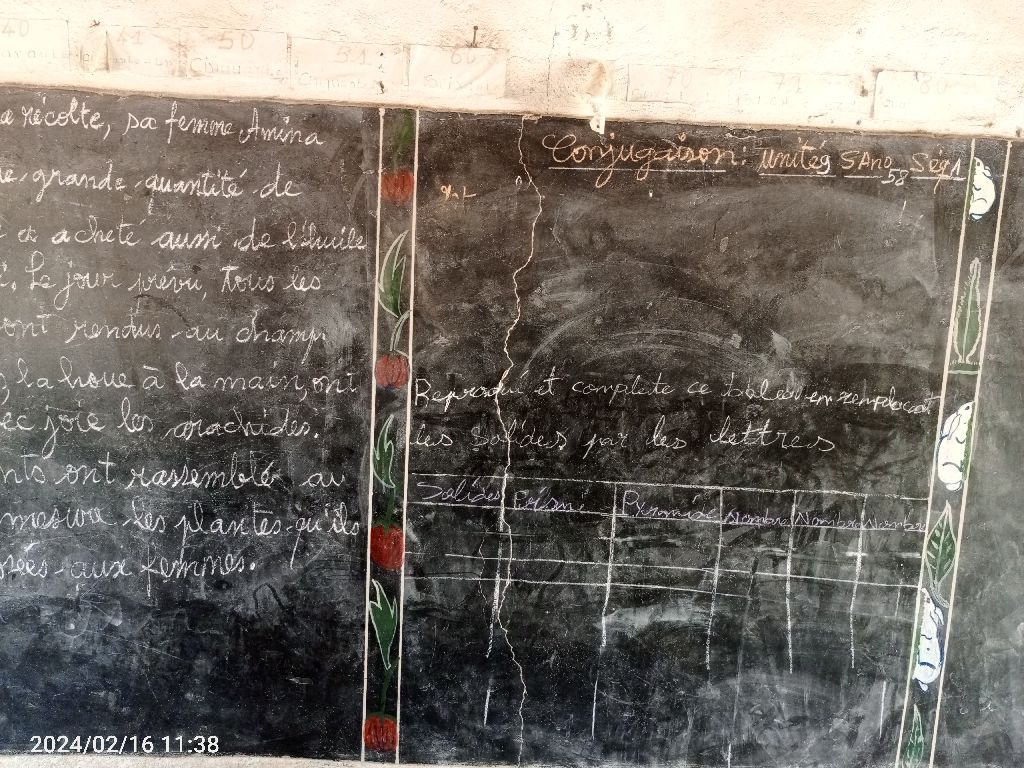 40
41
50
51
60
70
71
80
a récolte, sa femme Amina
grande quantité de
a acheté aussi de l'huile
Le jour prévu, tous les
ont rendus au champ.
la houe à la main, ont
ec joie les arachides.
nts ont rassemblé au
mesure les plantes qu'ils
sées aux femmes.
Conjugaison: unité5 SAn° 58 Séq1
et complète ce en remplacat
les Solides par des lettres
Solides Prism Pyramide Nombre Nombre Nombre
2024/02/16 11:38